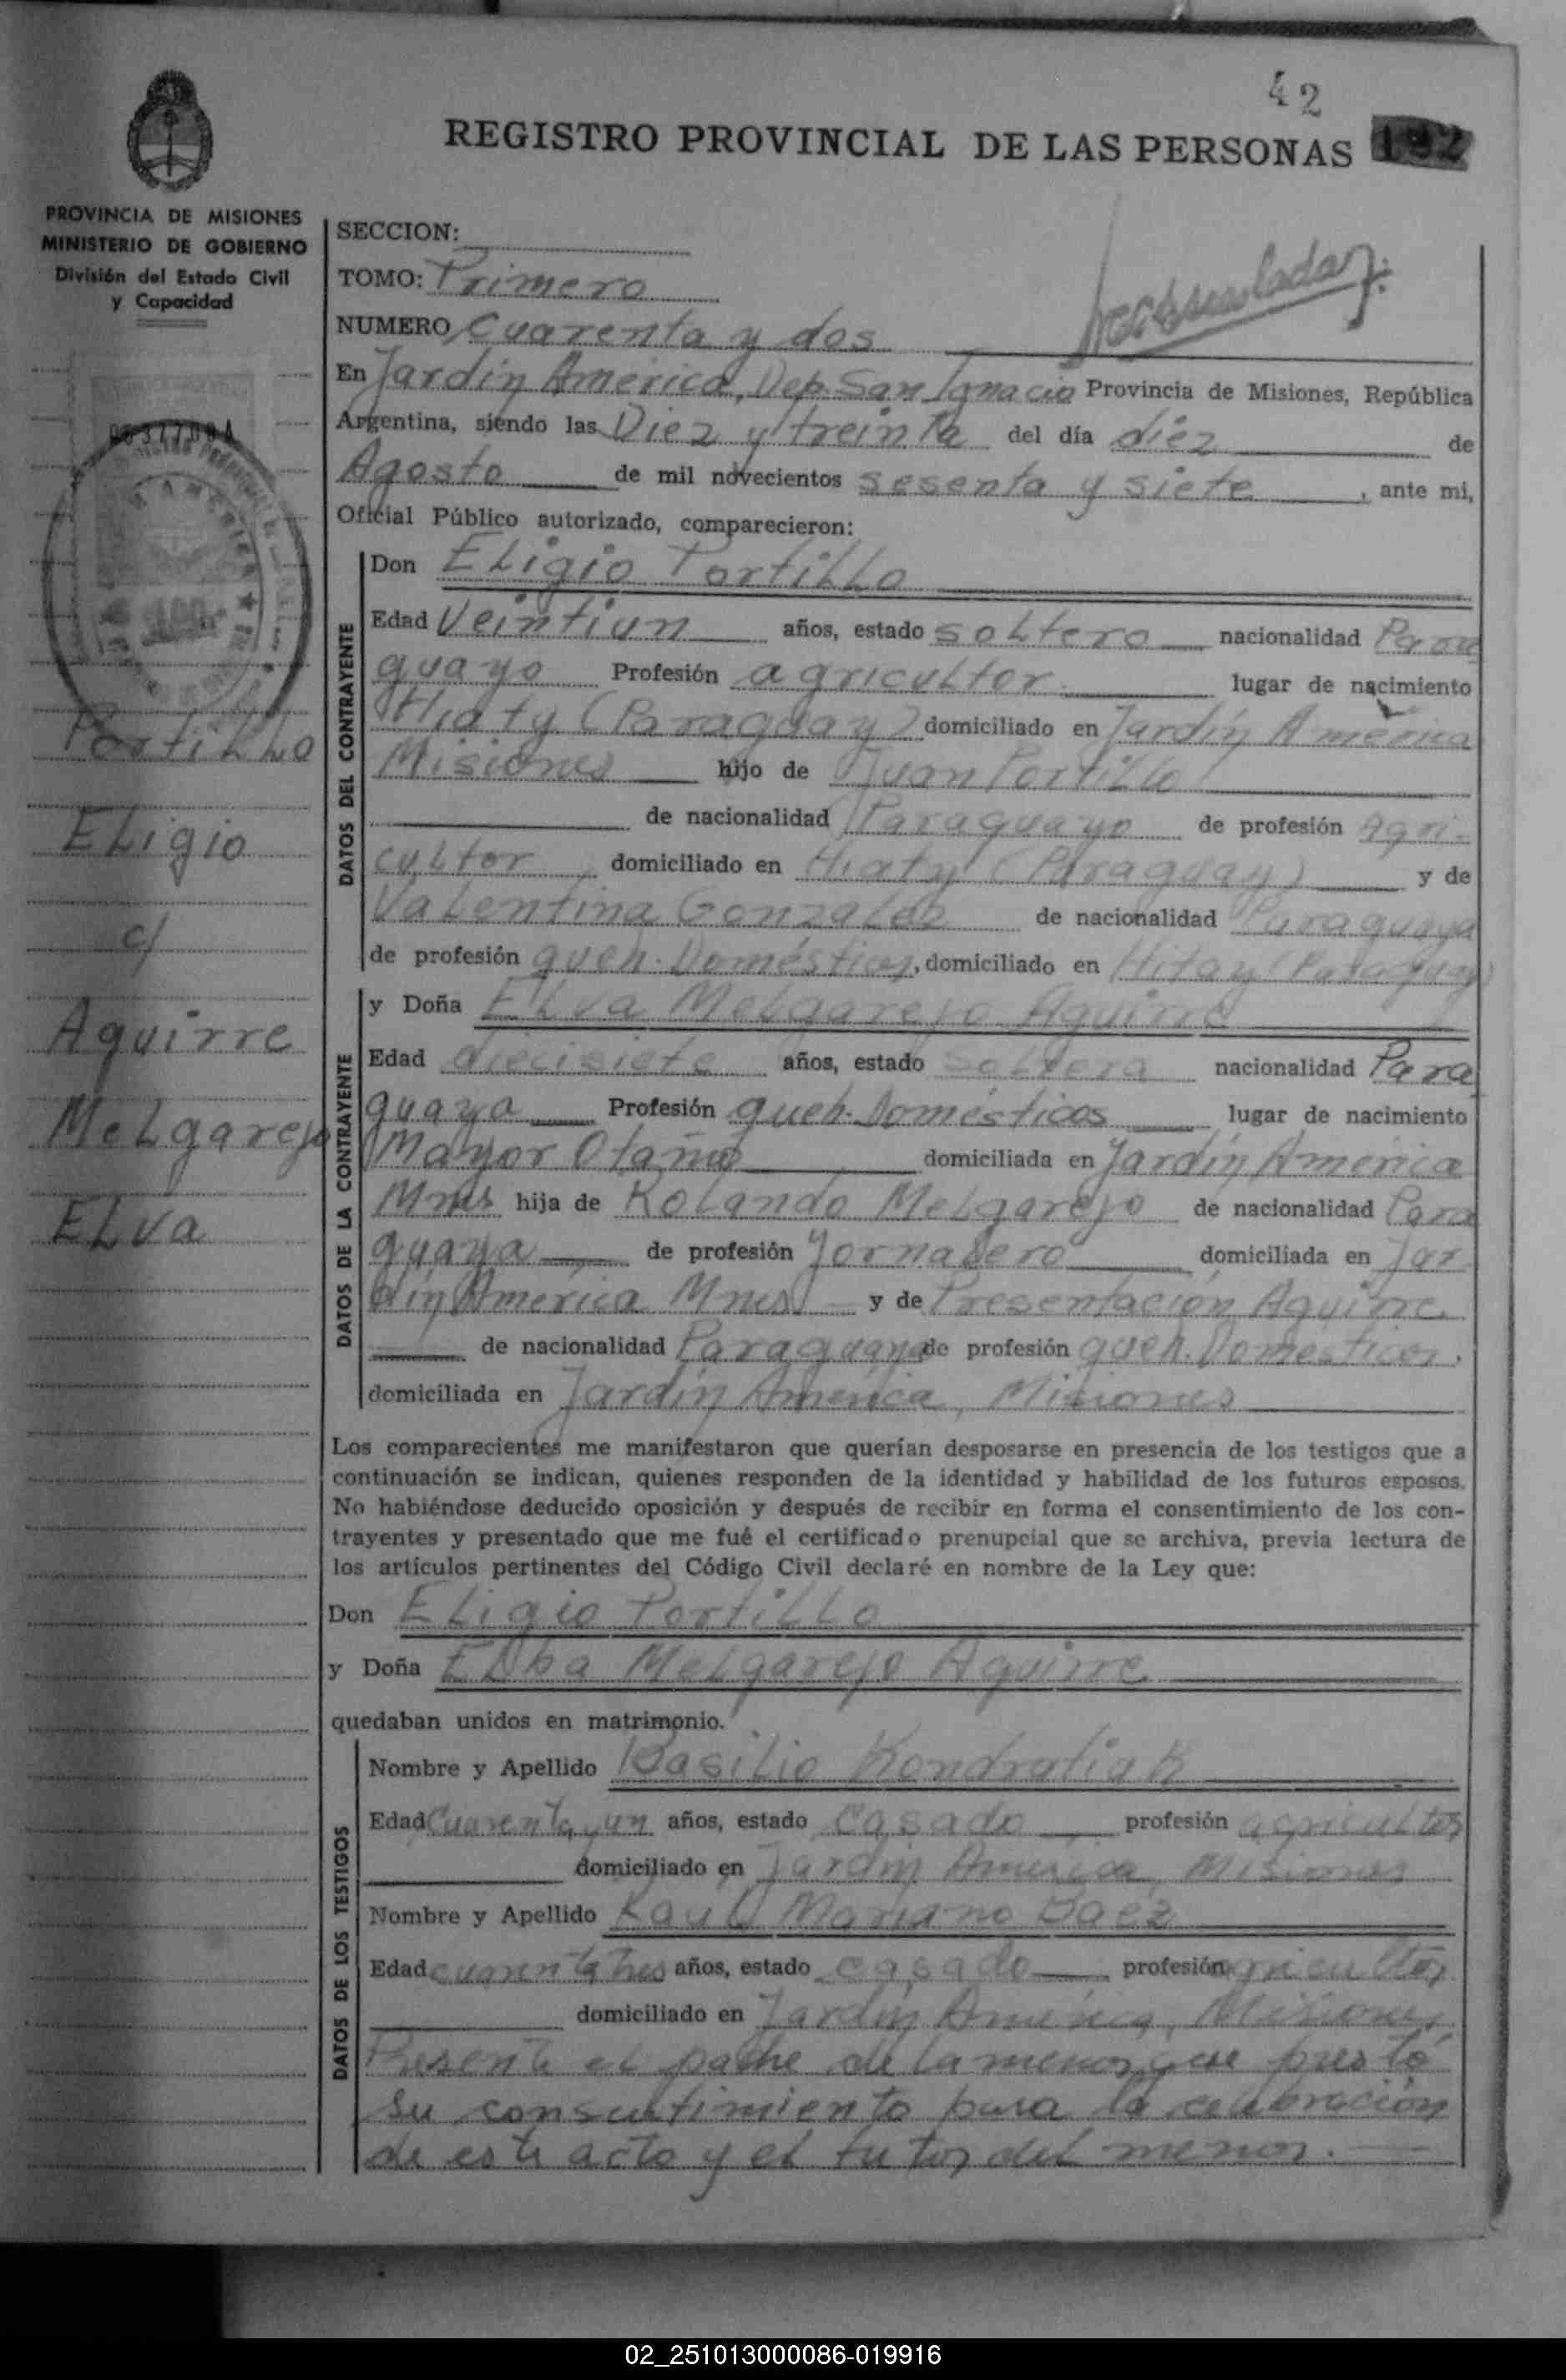 42
REGISTRO PROVINCIAL DE LAS PERSONAS 192
PROVINCIA DE MISIONES
MINISTERIO DE GOBIERNO
División del Estado Civil
y Capacidad
SECCION:
TOMO: Primero
NUMERO Cuarenta y dos
En Jardín América, Dep. San Ignacio Provincia de Misiones, República
Argentina, siendo las Diez y treinta del día diez de
Agosto de mil novecientos sesenta y siete, ante mi,
Oficial Público autorizado, comparecieron:
DATOS DEL CONTRAYENTE
Don Eligio Portillo
Edad Veintiun años, estado soltero nacionalidad Para
guayo Profesión agricultor. lugar de nacimiento
Hiaty (Paraguay) domiciliado en Jardín América
Misiones hijo de Juan Portillo
de nacionalidad Paraguayo de profesión Agri-
cultor domiciliado en Hiaty (Paraguay) y de
Valentina Gonzalez de nacionalidad Paraguaya
de profesión queh. Domésticos, domiciliado en Hitay (Paraguay)
DATOS DE LA CONTRAYENTE
y Doña Elva Melgarejo Aguirre
Edad diecisiete años, estado soltera nacionalidad Para
guaya Profesión queh. Domésticos lugar de nacimiento
Mayor Otaño domiciliada en Jardín América
Mnes hija de Rolando Melgarejo de nacionalidad Para
guaya de profesión Jornalero domiciliada en Jar
dín América Mnes y de Presentación Aguirre
de nacionalidad Paraguaya de profesión queh. Domésticos,
domiciliada en Jardín América, Misiones
Los comparecientes me manifestaron que querían desposarse en presencia de los testigos que a
continuación se indican, quienes responden de la identidad y habilidad de los futuros esposos.
No habiéndose deducido oposición y después de recibir en forma el consentimiento de los con-
trayentes y presentado que me fué el certificado prenupcial que se archiva, previa lectura de
los artículos pertinentes del Código Civil declaré en nombre de la Ley que:
Don Eligio Portillo
y Doña Elba Melgarejo Aguirre
quedaban unidos en matrimonio.
DATOS DE LOS TESTIGOS
Nombre y Apellido Basilio Kondratiuk
Edad Cuarenta y un años, estado Casado profesión agricultor
domiciliado en Jardín América, Misiones
Nombre y Apellido Raúl Mariano Baez
Edad cuarenta tres años, estado casado profesión agricultor
domiciliado en Jardín América, Misiones
Presente el padre de la menor que prestó
su consentimiento para la celebración
de este acto y el tutor del menor.
Portillo
Eligio
c/
Aguirre
Melgarejo
Elva
02_251013000086-019916